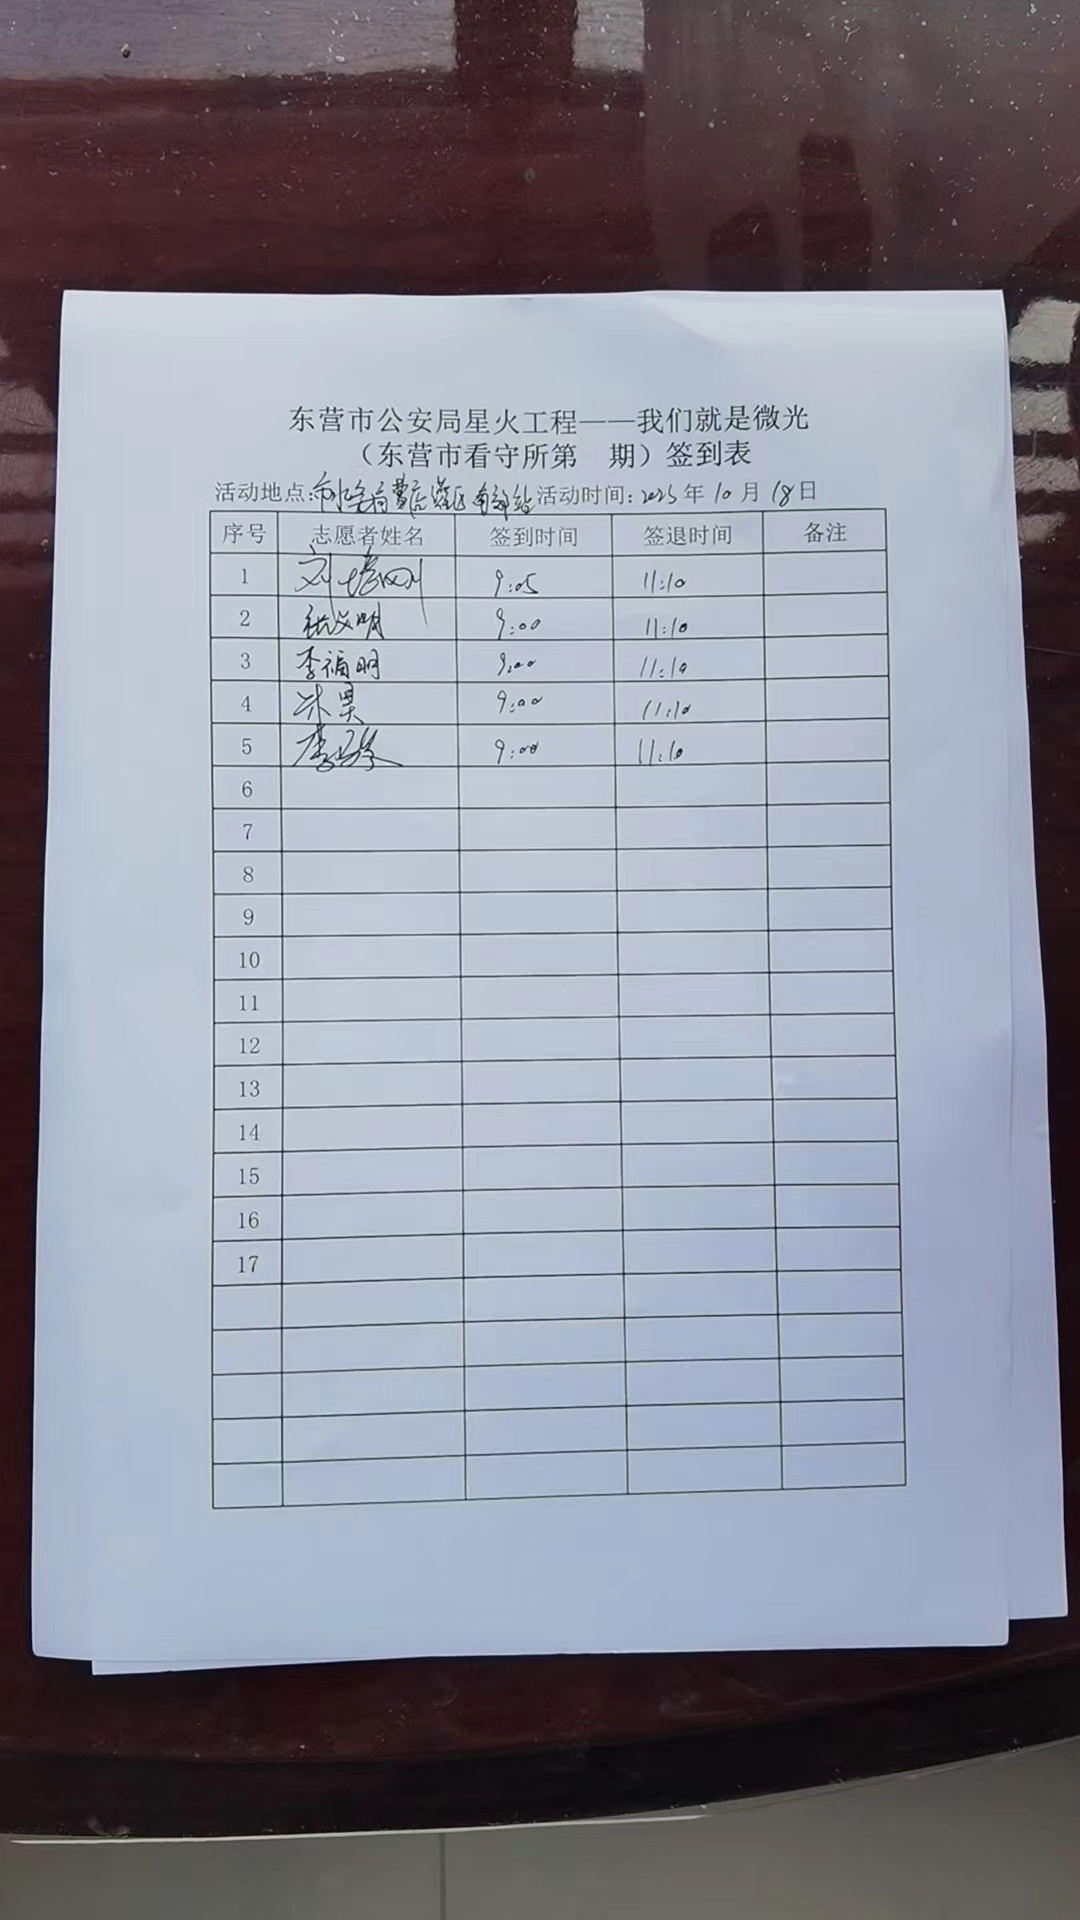 东营市公安局星火工程——我们就是微光
（东营市看守所第 期）签到表
活动地点: 活动时间: 2025 年 10 月 18 日
序号 志愿者姓名 签到时间 签退时间 备注
1 刘培刚 9:05 11:10
2 张义明 9:00 11:10
3 李福明 9:00 11:10
4 9:00 11:10
5 9:00 11:10
6
7
8
9
10
11
12
13
14
15
16
17